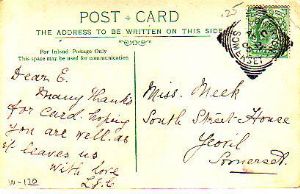 .25
POST CARD
THE ADDRESS TO BE WRITTEN ON THIS SIDE
For Inland Postage Only
This space may be used for communication
Dear E.
Many thanks
for card. hoping
you are well. as
it leaves us
With love
Miss. Meek
South Street House
Yeovil
Somerset.
W-120